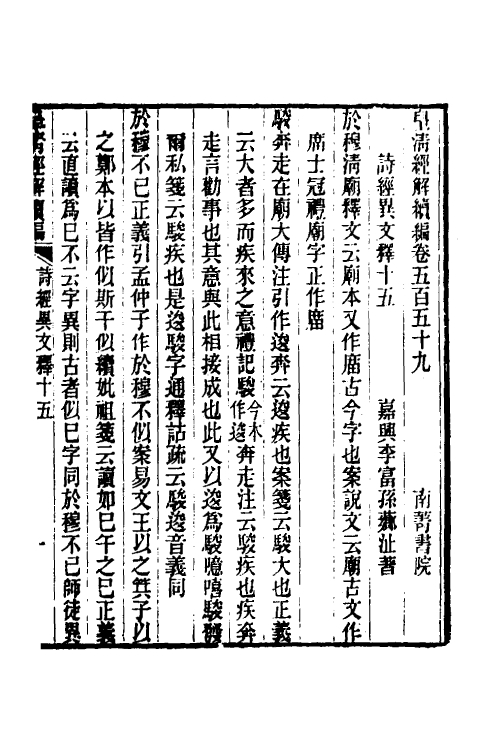 皇清經解續編卷五百五十九　南菁書院
詩經異文釋十五　嘉興李富孫薌沚著
於穆淸廟釋文云廟本又作庿古今字也案說文云廟古文作
庿士冠禮廟字正作庿
駿奔走在廟大傳注引作逡奔云逡疾也案箋云駿大也正義
云大者多而疾來之意禮記駿今本作逡奔走注云駿疾也疾奔
走言勸事也其意與此相接成也此又以逡爲駿噫嘻駿發
爾私箋云駿疾也是逡駿字通釋詁疏云駿逡音義同
於穆不已正義引孟仲子作於穆不似案易文王以之箕子以
之鄭本以皆作似斯干似續妣祖箋云讀如巳午之巳正義
云直讀爲巳不云字異則古者似巳字同於穆不已師徒異
皇淸經解續編
詩經異文釋十五